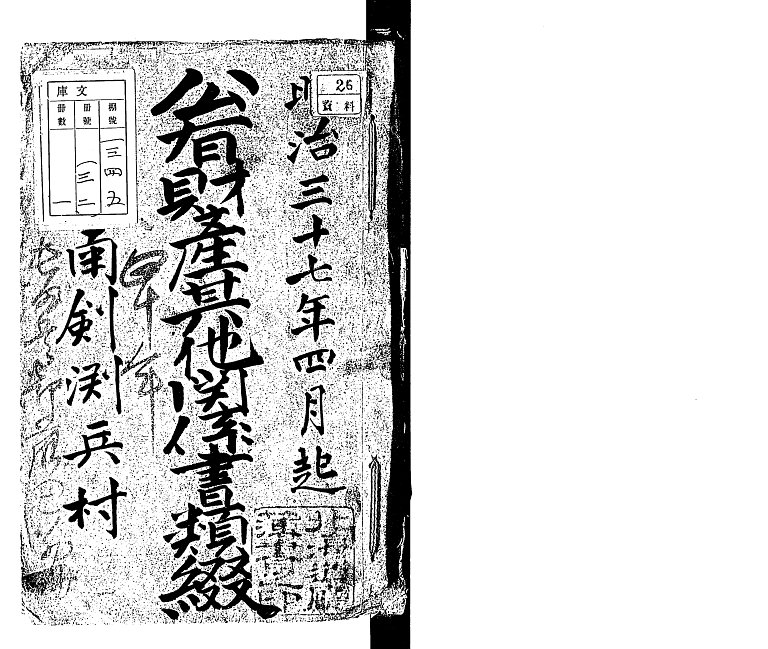 26
資料
明治三十七年四月起
公有財產其他関係書類綴
南剣渕兵村
文庫
棚號 一三四五
册號 一三二
册數 一